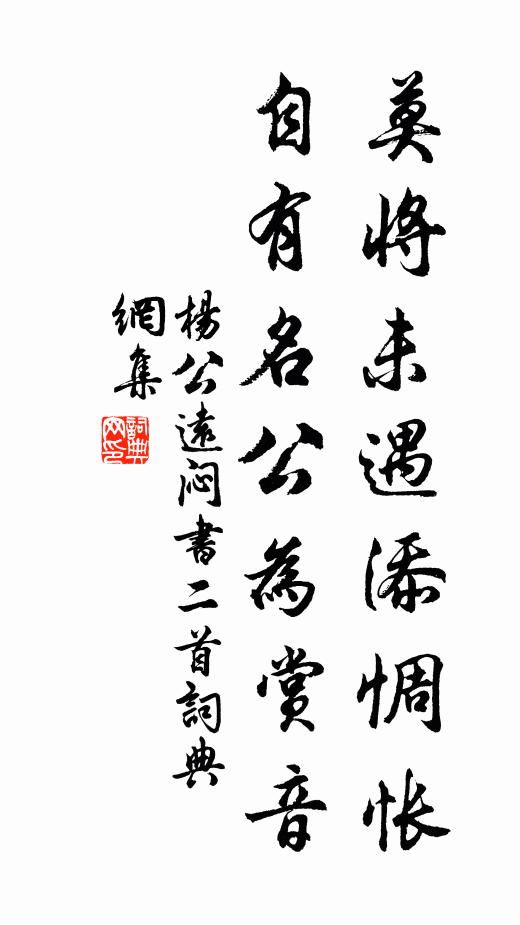 莫將未遇添惆悵
自有名公為賞音
楊公遠悶書二首詞典
網集
詞典
网印